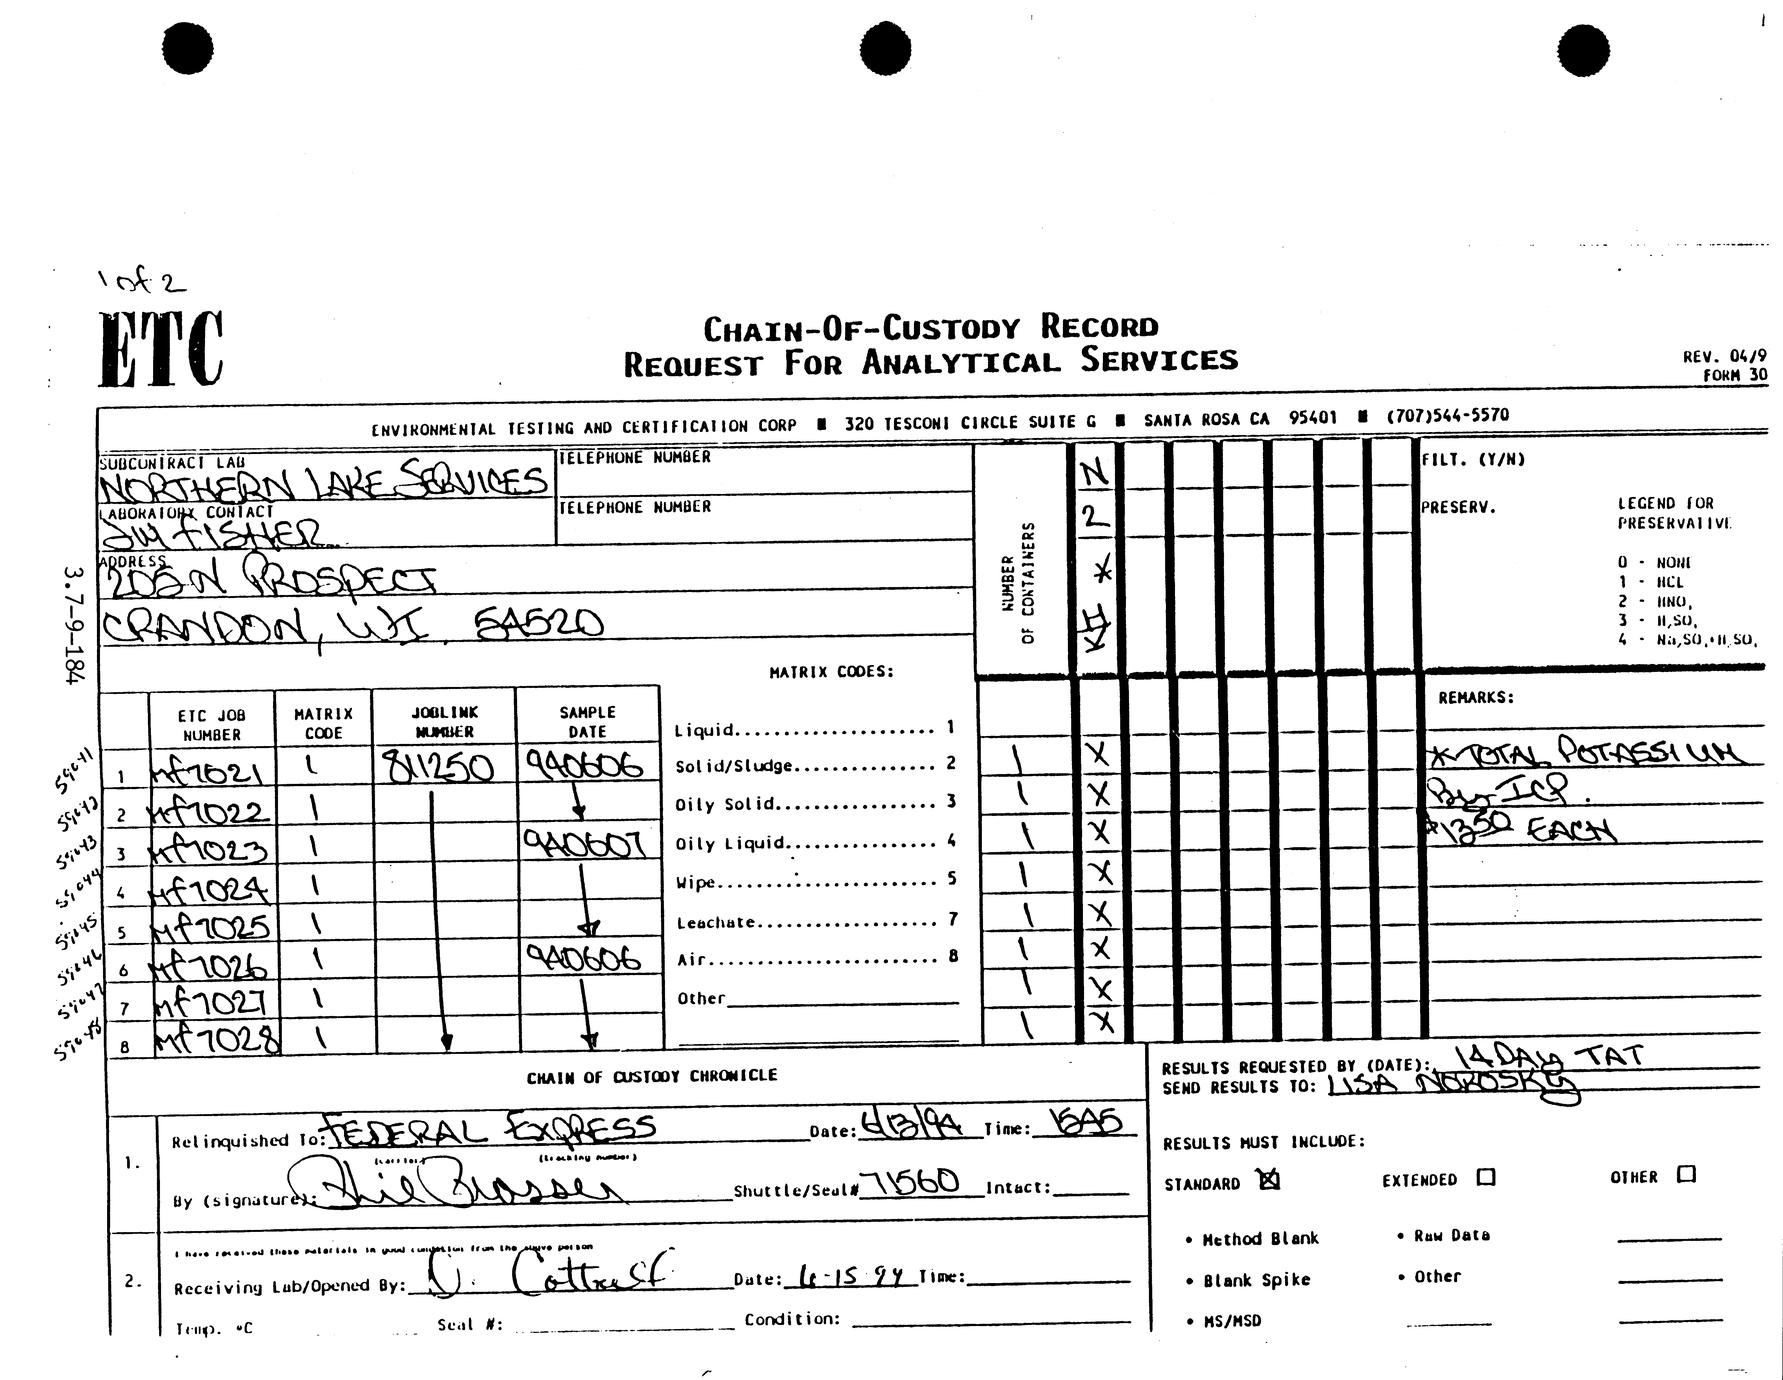 1 of 2
ETC
CHAIN-OF-CUSTODY RECORD
REQUEST FOR ANALYTICAL SERVICES
REV. 04/9
FORM 30
ENVIRONMENTAL TESTING AND CERTIFICATION CORP ■ 320 TESCONI CIRCLE SUITE G ■ SANTA ROSA CA 95401 ■ (707)544-5570
SUBCONTRACT LAB
NORTHERN LAKE SERVICES
TELEPHONE NUMBER
LABORATORY CONTACT
JIM FISHER
TELEPHONE NUMBER
ADDRESS
CRANDON, WI. 54520
3.7-9-184
NUMBER OF CONTAINERS
N
2
*
FILT. (Y/N)
PRESERV.
LEGEND FOR
PRESERVATIVE
0 - NONE
1 - HCL
2 - HNO,
3 - H,SO,
4 - Na,SO,+H,SO,
MATRIX CODES:
REMARKS:
ETC JOB NUMBER MATRIX CODE JOBLINK NUMBER SAMPLE DATE
Liquid.................... 1
Solid/Sludge.............. 2
Oily Solid................ 3
Oily Liquid............... 4
Wipe...................... 5
Leachate.................. 7
Air....................... 8
Other
59041 1 MF7021 1 811250 940606 1 X
2 MF7022 1 1 X
59043 3 MF7023 1 940607 1 X
59044 4 MF7024 1 1 X
59045 5 MF7025 1 1 X
59046 6 MF7026 1 940606 1 X
59047 7 MF7027 1 1 X
59048 8 MF7028 1 1 X
*TOTAL POTASSIUM
By ICP.
$13.50 EACH
CHAIN OF CUSTODY CHRONICLE
RESULTS REQUESTED BY (DATE): 14 DAY TAT
SEND RESULTS TO: LISA NOROSKY
1.
Relinquished To: FEDERAL EXPRESS Date: 6/13/94 Time: 1545
(carrier) (tracking number)
By (signature): Shuttle/Seal# 71560 Intact:
RESULTS MUST INCLUDE:
STANDARD X EXTENDED OTHER
• Method Blank • Raw Data
• Blank Spike • Other
• MS/MSD
2.
I have received these materials in good condition from the above person
Receiving Lab/Opened By: Date: 6-15-94 Time:
Temp. °C Seal #: Condition: